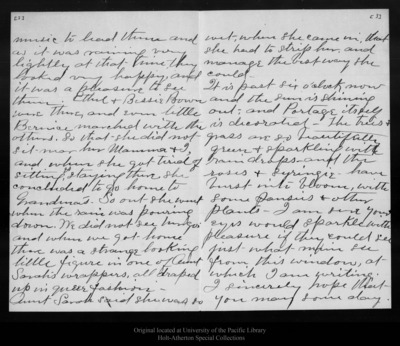 music to lead them and
as it was raining very
lightly at that time, they
looked very happy, and
it was a pleasure to see
them. Ethel & Bessie Bowen
were there, and even little
Bernice marched with the
others. So that she did not
sit near her Mamma & I,
and when she got tired of
sitting, staying there she
concluded to go home to
Grandma's. So out she went
when the rain was pouring
down. We did not see her go
and when we got home,
there was a strange looking
little figure in one of Aunt
Sarah's wrappers, all draped
up in queer fashion.
Aunt Sarah said she was so
wet, when she came in, that
she had to strip her, and
manage the best way she
could.
It is past six o'clock, now
and the sun is shining
out, and Portage itself
is decoration. The trees &
grass are so beautifully
green & sparkling with
rain drops, and the
roses & syringa have
burst into bloom, with
some pansies & other
plants. I am sure your
eyes would sparkle with
pleasure if they could see
just what mine see
from this window, at
which I am writing.
I sincerely hope that
you may some day.
Original located at University of the Pacific Library
Holt-Atherton Special Collections